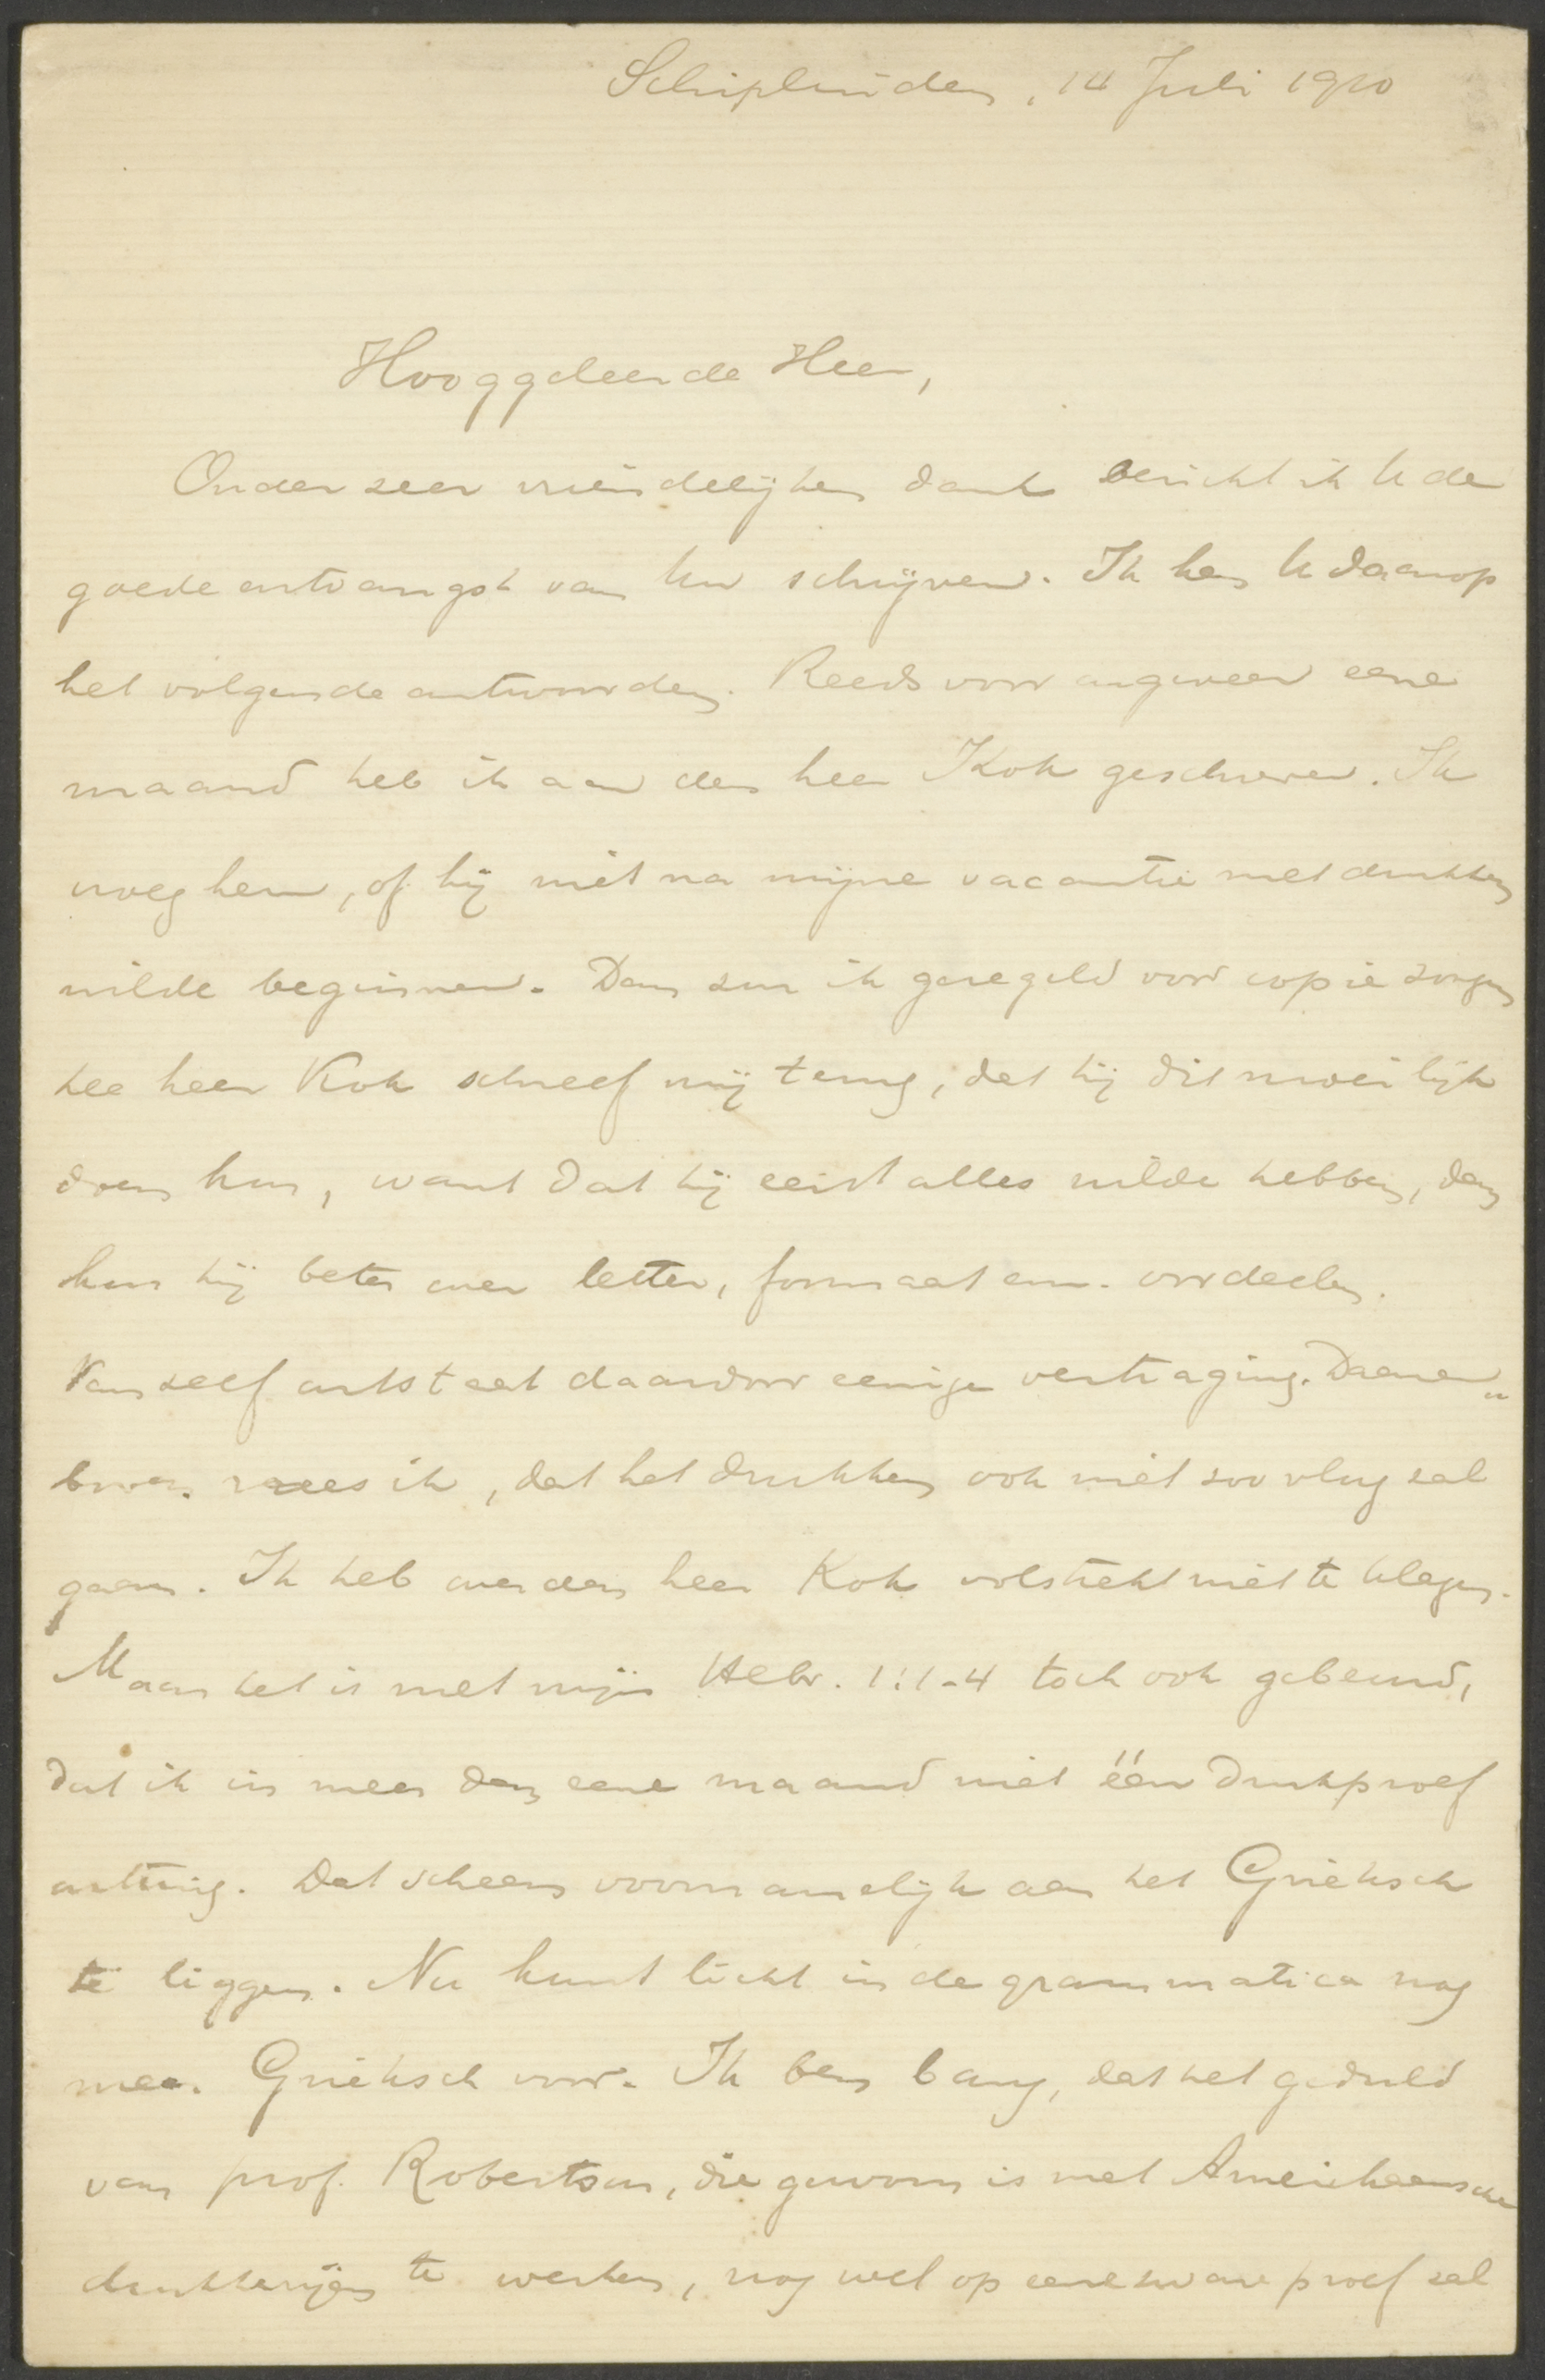 Schipluiden, 14 Juli 1910
Hooggeleerde Heer,
Onder zeer vriendelijken dank bericht ik U de
goede ontvangst van Uw schrijven. Ik kan U daarop
het volgende antwoorden. Reeds voor ongeveer eene
maand heb ik aan den heer Kok geschreven. Ik
vroeg hem, of hij niet na mijne vacantie met drukken
wilde beginnen. Dan zou ik geregeld voor copie zorgen
heer Kok schreef mij terug, dat hij dit moeilijk
doen kon, want dat hij eerst alles wilde hebben, dan
kon hij beter over letter, formaat enz. oordeelen.
Vanzelf ontstaat daardoor eenige vertraging. Daaren„
boven vrees ik, dat het drukken ook niet zoo vlug zal
gaan. Ik heb over den heer Kok volstrekt niet te klagen.
Maar het is met mijn Hebr. 1:1-4 toch ook gebeurd,
dat ik in meer dan eene maand niet één drukproef
ontving. Dat scheen voornamelijk aan het Grieksch
te liggen. Nu komt licht in de grammatica nog
meer Grieksch voor. Ik ben bang, dat het geduld
van prof. Robertson, die gewoon is met Amerikaansche
drukkerijen te werken, nog wel op eene zware proef zal